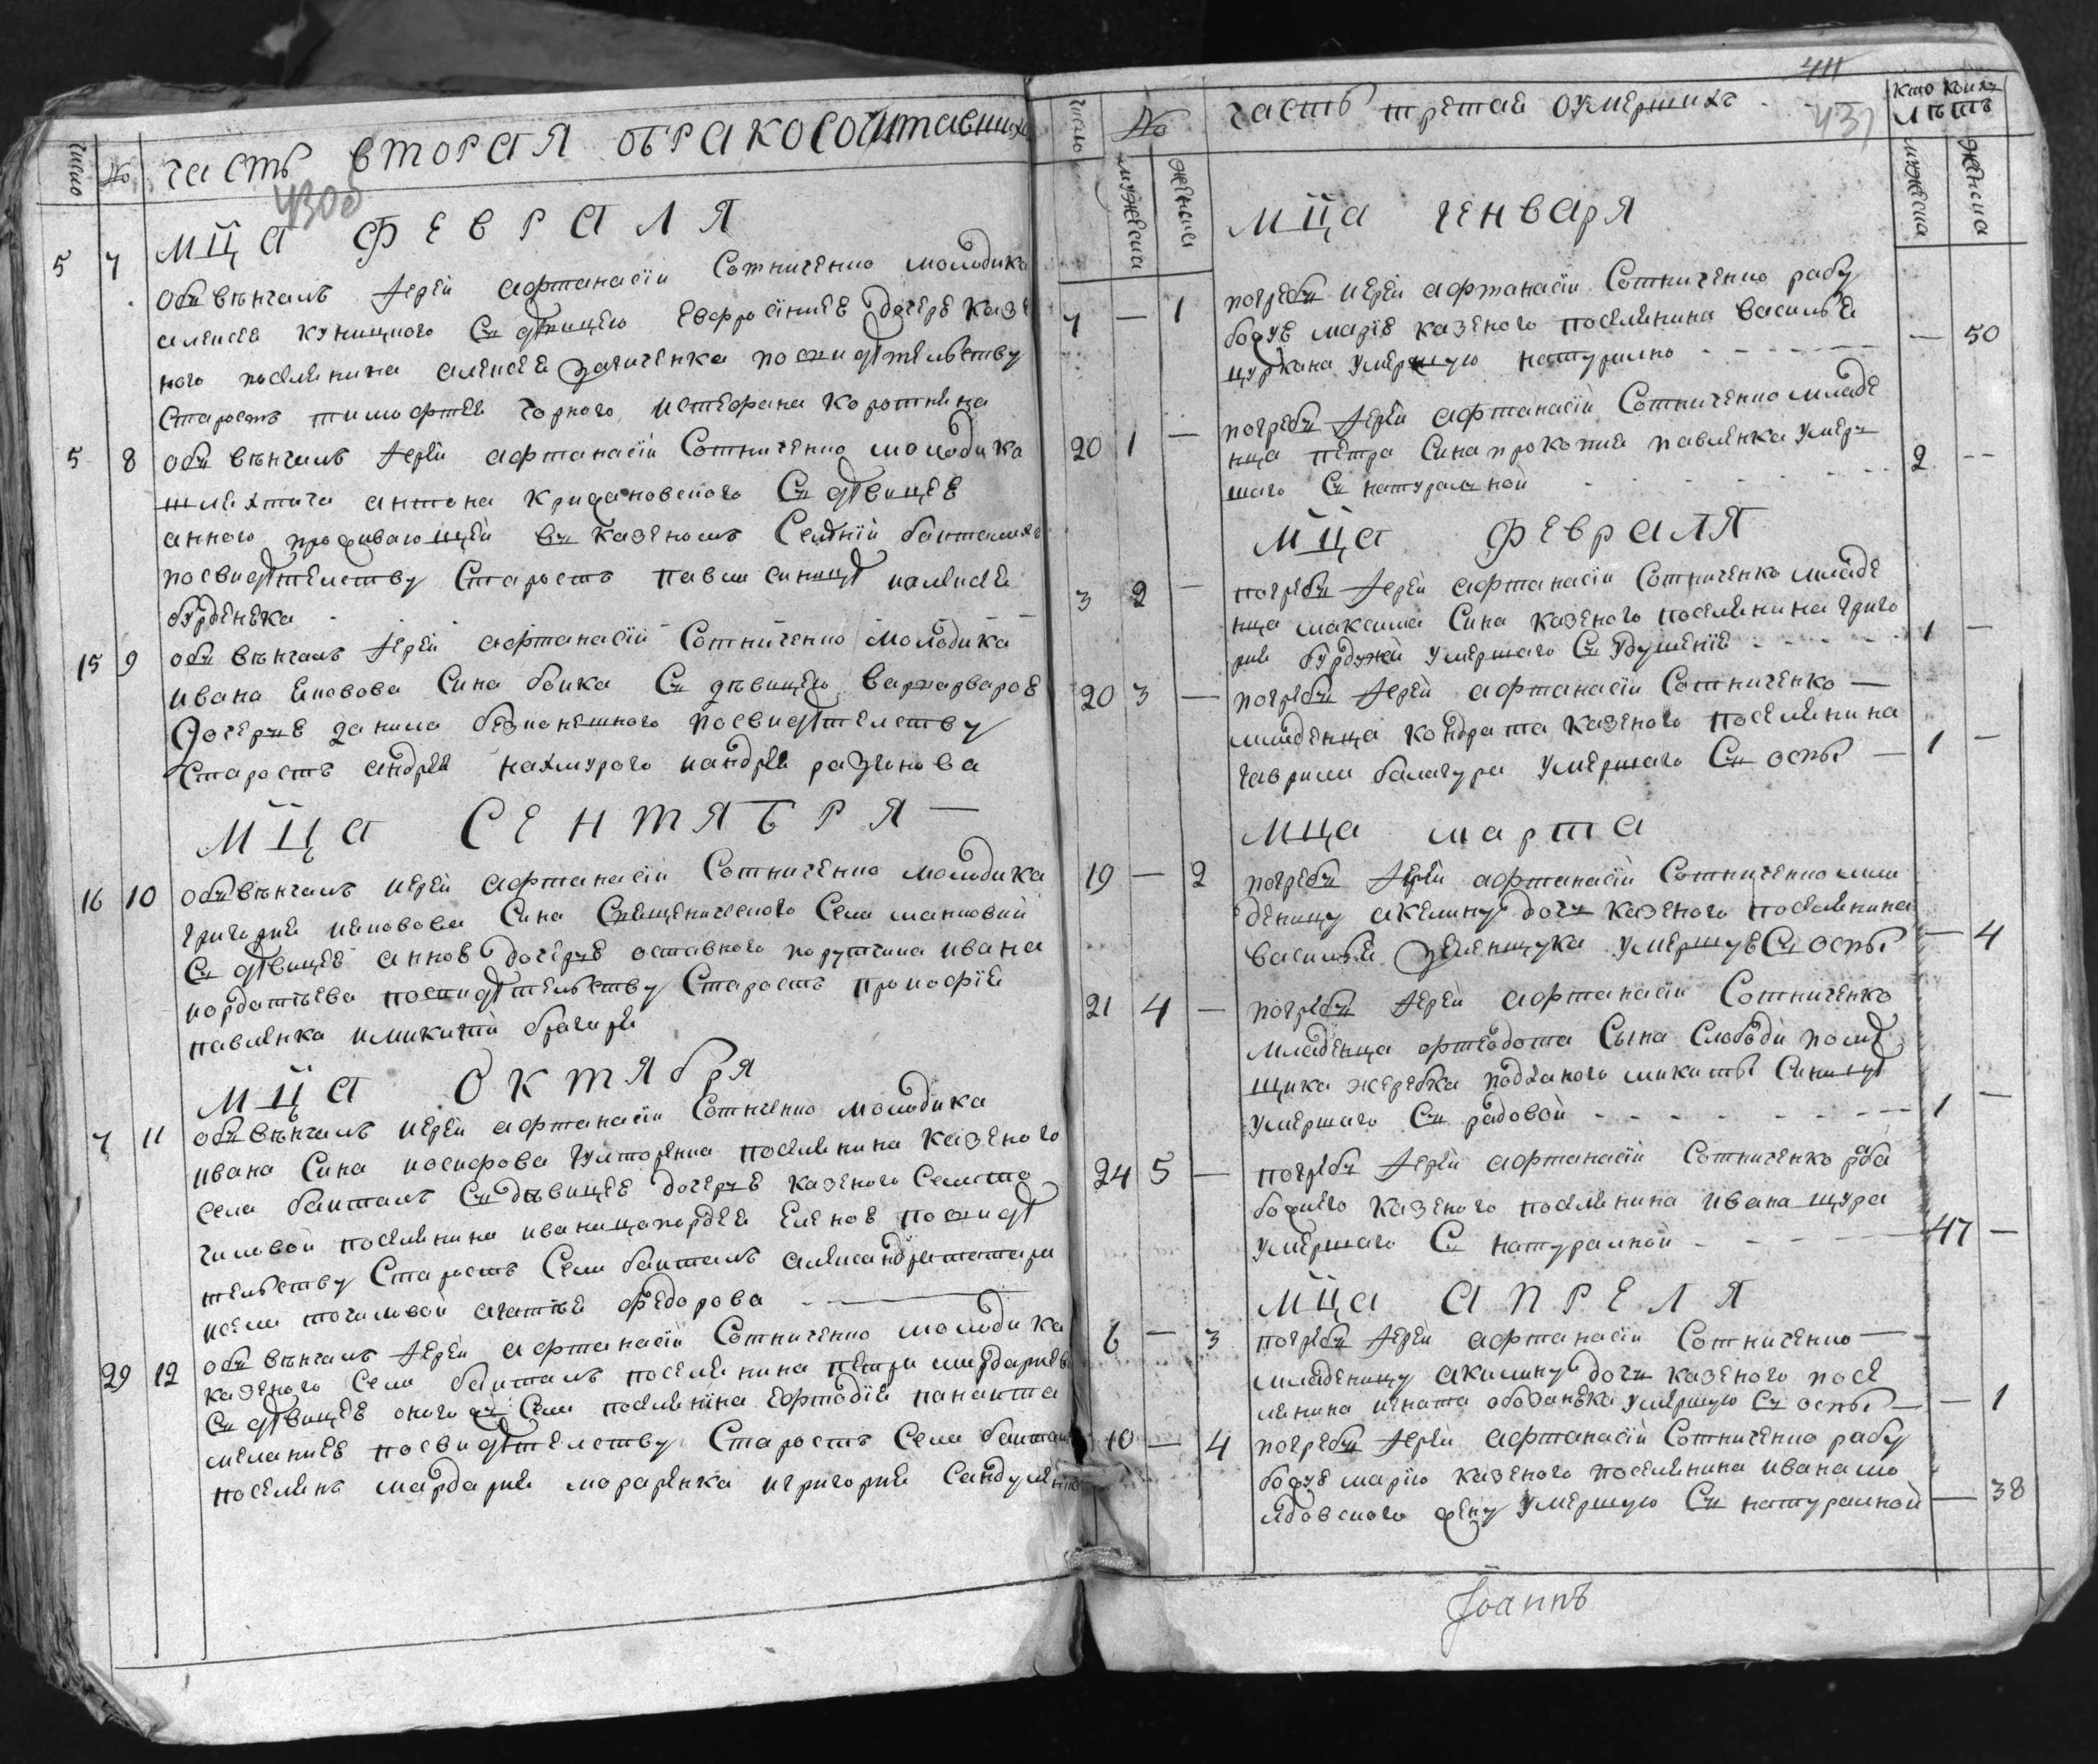 число № часть вторая обракосочитавшихс
430об
мца февраля
5 7 обвѣнчалъ іерей афтанасій Сотниченко молодика
алексея куницкого Съ дѣвицею евфросиниею дочере казе
ного поселянина алексея посвидѣтельству
Старостъ тимофтея Чорного истефана коротнина
5 8 обвѣнчалъ іерей афтанасій Сотниченко молодика
шляхтича антона кридановского Съ дѣвицее
анною проживающей въ казеномъ Селѣнїй бантамахъ
посвидѣтелству Старостъ павла синицѣ иалексея
бурденька
15 9 обвѣнчалъ іерей афтанасій Сотниченко молодика
ивана Сина боика Съ дѣвицею варварвароє
дочерце данила посвидѣтелству
Старостъ андрея нахмурого иандрея разгонова
мца Сентября
16 10 обвѣнчалъ иерей афтанасій Сотниченко молодика
григория Сина Священического Села
Съ дѣвицеє анноє дочерце оставного порутчика ивана
посвидѣтельству Старостъ прокофїя
павленка имикити брагиря
мца октября
7 11 обвѣнчалъ иерей афтанасій Сотниченко молодика
ивана Сина иосифова поселянина казеного
села бантамъ Съ дѣвицеє дочерце казеного Селисто
чиловой поселянина ивана Еленоє посвидѣ
тельству Старостъ Села бантамъ
исела точиловой федорова
29 12 обвѣнчалъ іерей афтанасій Сотниченко молодика
казеного Села бантамъ поселянина петра
Съ дѣвицеє оного Села поселянина
меланиеє посвидѣтелству Старостъ Села бантам
поселянъ мардария морарѣнка игригория Сандулян
411
431
число № часть третая оумершихъ кто коихъ лѣтъ
мужеска женска мужеска женска
мца генваря
7 — 1 погребъ иерей афтанасій Сотниченко рабу
божуе марїе казеного поселянина василья
цуркана умершую натурално — 50
20 1 — погребъ іерей афтанасій Сотниченко младе
нца петра Сина прокопия павленка умерь
шаго Съ натуралной 2 —
мца февраля
3 2 — погребъ іерей афтанасій Сотниченко младе
нца максима Сина казеного поселянина григо
рия бурджи умершаго Съ удушенїе 1 —
20 3 — погребъ іерей афтанасій Сотниченко —
младенца кондрата казеного поселянина
гаврила балагура умершаго Съ оспы — 1 —
мца марта
19 — 2 погребъ іерей афтанасій Сотниченко мла
деницу акелину дочъ казеного поселянина
василья умершуеСъ оспы — 4
21 4 — погребъ іерей афтанасій Сотниченко
младенца фтеодота Сына Слободи помѣ
щика жеребка подданого микиты Синицѣ
умершаго Съ радовой 1 —
24 5 — погребъ іерей афтанасій Сотниченко раба
божиего казеного поселянина ивана щура
умершаго Съ натуралной 47 —
мца апреля
6 — 3 погребъ іерей афтанасій Сотниченко —
младеницу акилину дочъ казеного посе
лянина игната ободанька умершую Съ оспы — — 1
10 — 4 погребъ іерей афтанасій Сотниченко рабу
божуе марїю казеного поселянина ивана мо
лдовского жену умершую Съ натуралной — 38
Іоаннъ